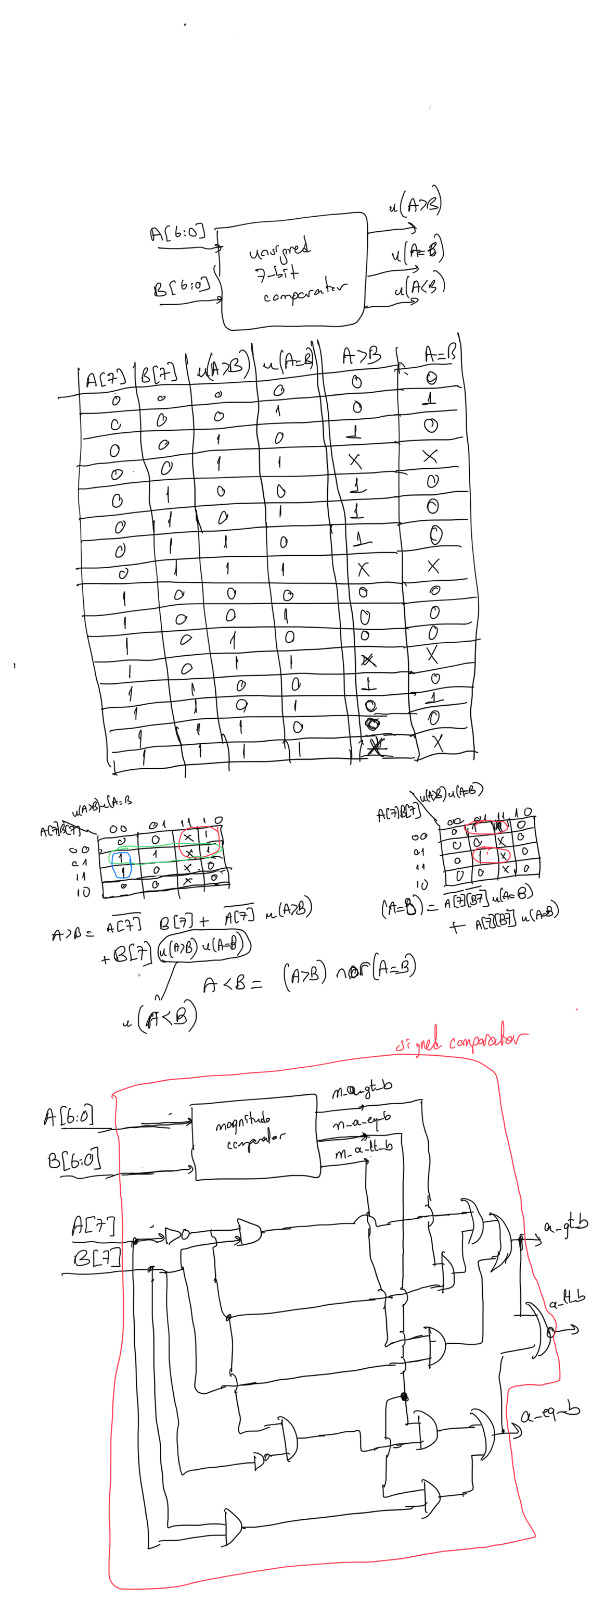 u(A>B)
A[6:0]
unsigned
7-bit
comparator
u(A=B)
B[6:0]
u(A<B)
A[7] B[7] u(A>B) u(A=B) A>B A=B
0 0 0 0 0 0
0 0 0 1 0 1
0 0 1 0 1 0
0 0 1 1 X X
0 1 0 0 1 0
0 1 0 1 1 0
0 1 1 0 1 0
0 1 1 1 X X
1 0 0 0 0 0
1 0 0 1 0 0
1 0 1 0 0 0
1 0 1 1 X X
1 1 0 0 1 0
1 1 0 1 0 1
1 1 1 0 0 0
1 1 1 1 X X
u(A>B)u(A=B
A[7]B[7]
00 01 11 10
00 0 0 X 1
01 1 1 X 1
11 1 0 X 0
10 0 0 X 0
u(A>B)u(A=B)
A[7]B[7]
00 01 11 10
00 0 1 X 0
01 0 0 X 0
11 0 1 X 0
10 0 0 X 0
A>B = A[7] B[7] + A[7] u(A>B)
+ B[7] u(A>B) u(A=B)
u(A<B)
(A=B) = A[7]B[7] u(A=B)
+ A[7]B[7] u(A=B)
A<B = (A>B) nor (A=B)
signed comparator
A[6:0]
B[6:0]
magnitude
comparator
m_a_gt_b
m_a_eq_b
m_a_lt_b
A[7]
B[7]
a_gt_b
a_lt_b
a_eq_b